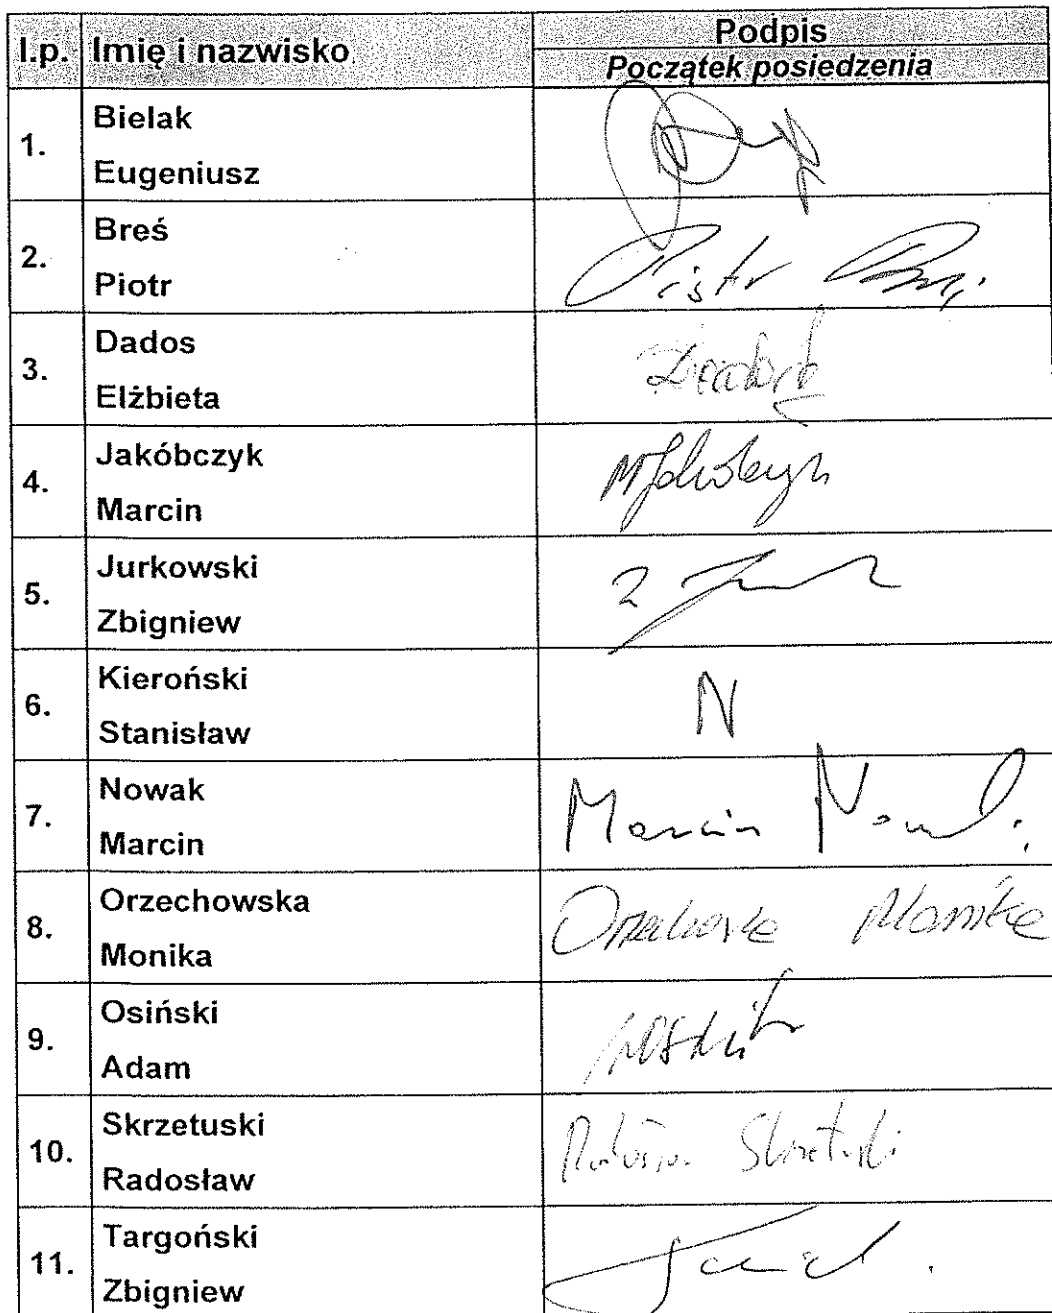 l.p. Imię i nazwisko Podpis
Początek posiedzenia
1. Bielak
Eugeniusz
2. Breś
Piotr
Piotr
3. Dados
Elżbieta
4. Jakóbczyk
Marcin
5. Jurkowski
Zbigniew
6. Kieroński
Stanisław
N
7. Nowak
Marcin
Marcin Nowak
8. Orzechowska
Monika
Monika
9. Osiński
Adam
10. Skrzetuski
Radosław
Skrzetuski
11. Targoński
Zbigniew